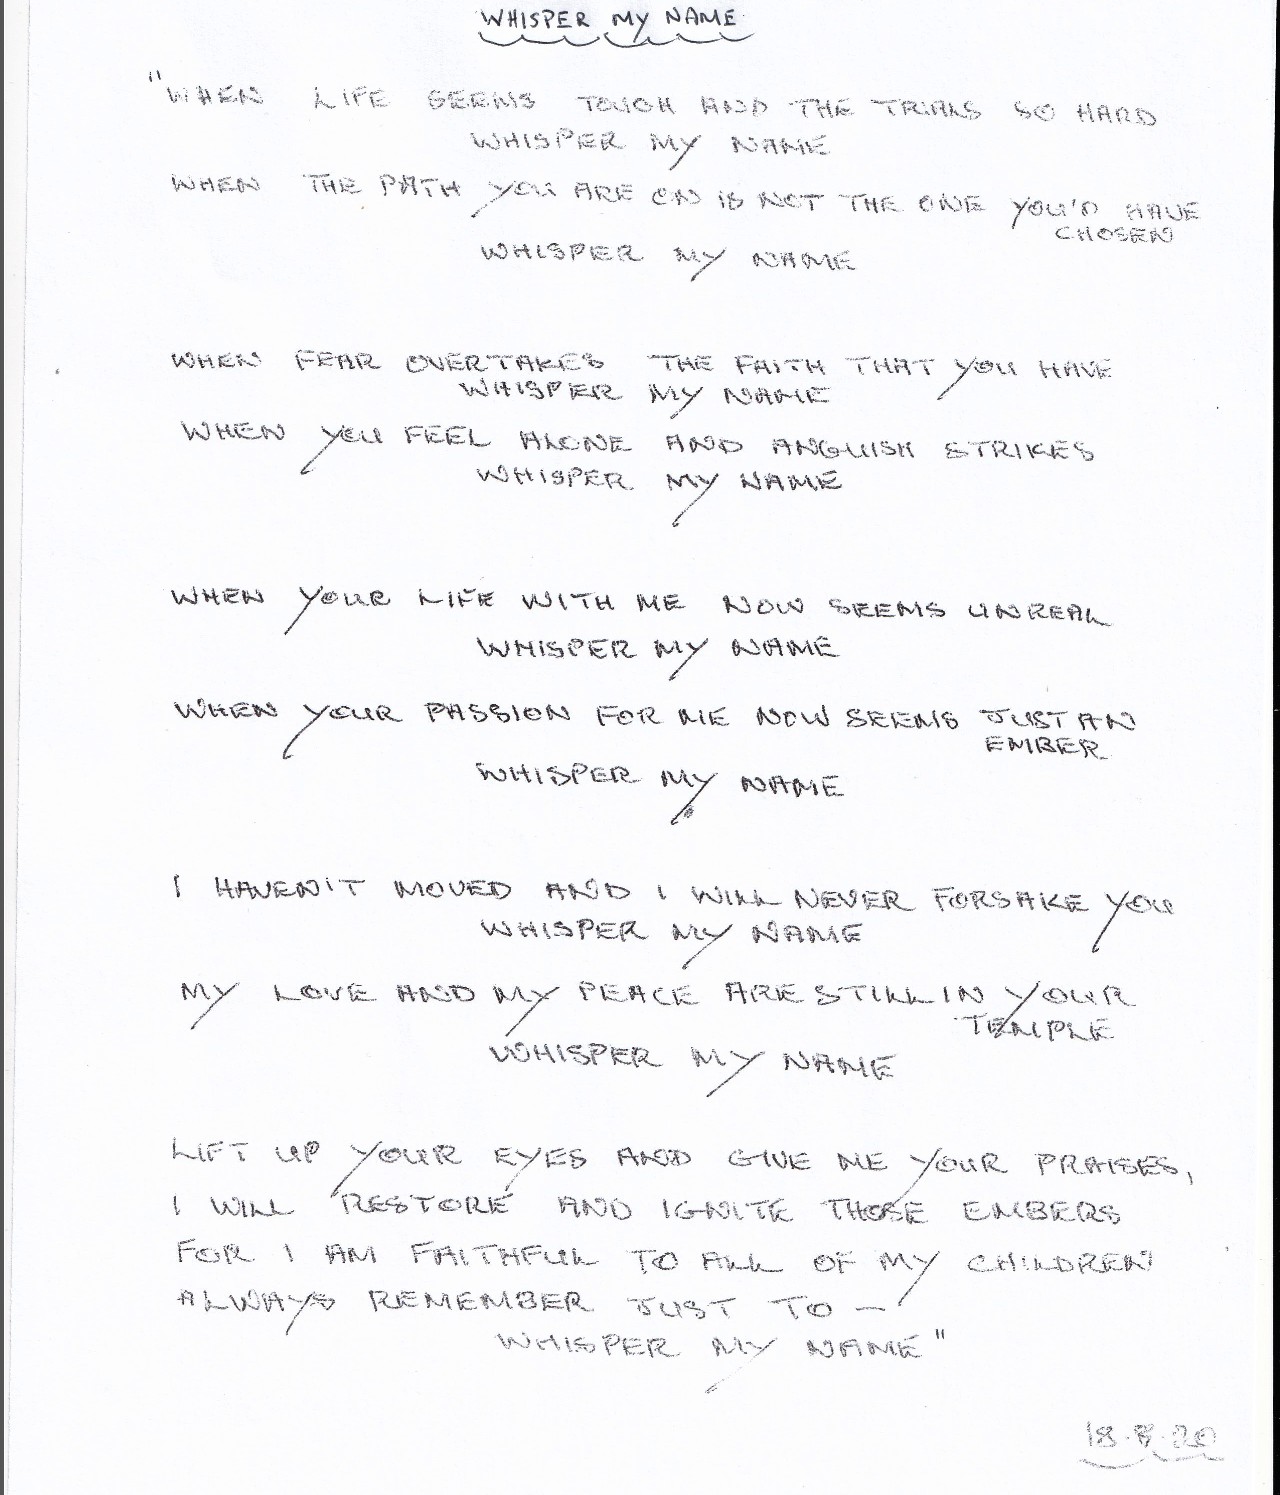 WHISPER MY NAME
"WHEN LIFE SEEMS TOUGH AND THE TRIALS SO HARD
WHISPER MY NAME
WHEN THE PATH YOU ARE ON IS NOT THE ONE YOU'D HAVE
CHOSEN
WHISPER MY NAME
WHEN FEAR OVERTAKES THE FAITH THAT YOU HAVE
WHISPER MY NAME
WHEN YOU FEEL ALONE AND ANGUISH STRIKES
WHISPER MY NAME
WHEN YOUR LIFE WITH ME NOW SEEMS UNREAL
WHISPER MY NAME
WHEN YOUR PASSION FOR ME NOW SEEMS JUST AN
EMBER
WHISPER MY NAME
I HAVEN'T MOVED AND I WILL NEVER FORSAKE YOU
WHISPER MY NAME
MY LOVE AND MY PEACE ARE STILL IN YOUR
TEMPLE
WHISPER MY NAME
LIFT UP YOUR EYES AND GIVE ME YOUR PRAISES,
I WILL RESTORE AND IGNITE THOSE EMBERS
FOR I AM FAITHFUL TO ALL OF MY CHILDREN
ALWAYS REMEMBER JUST TO —
WHISPER MY NAME"